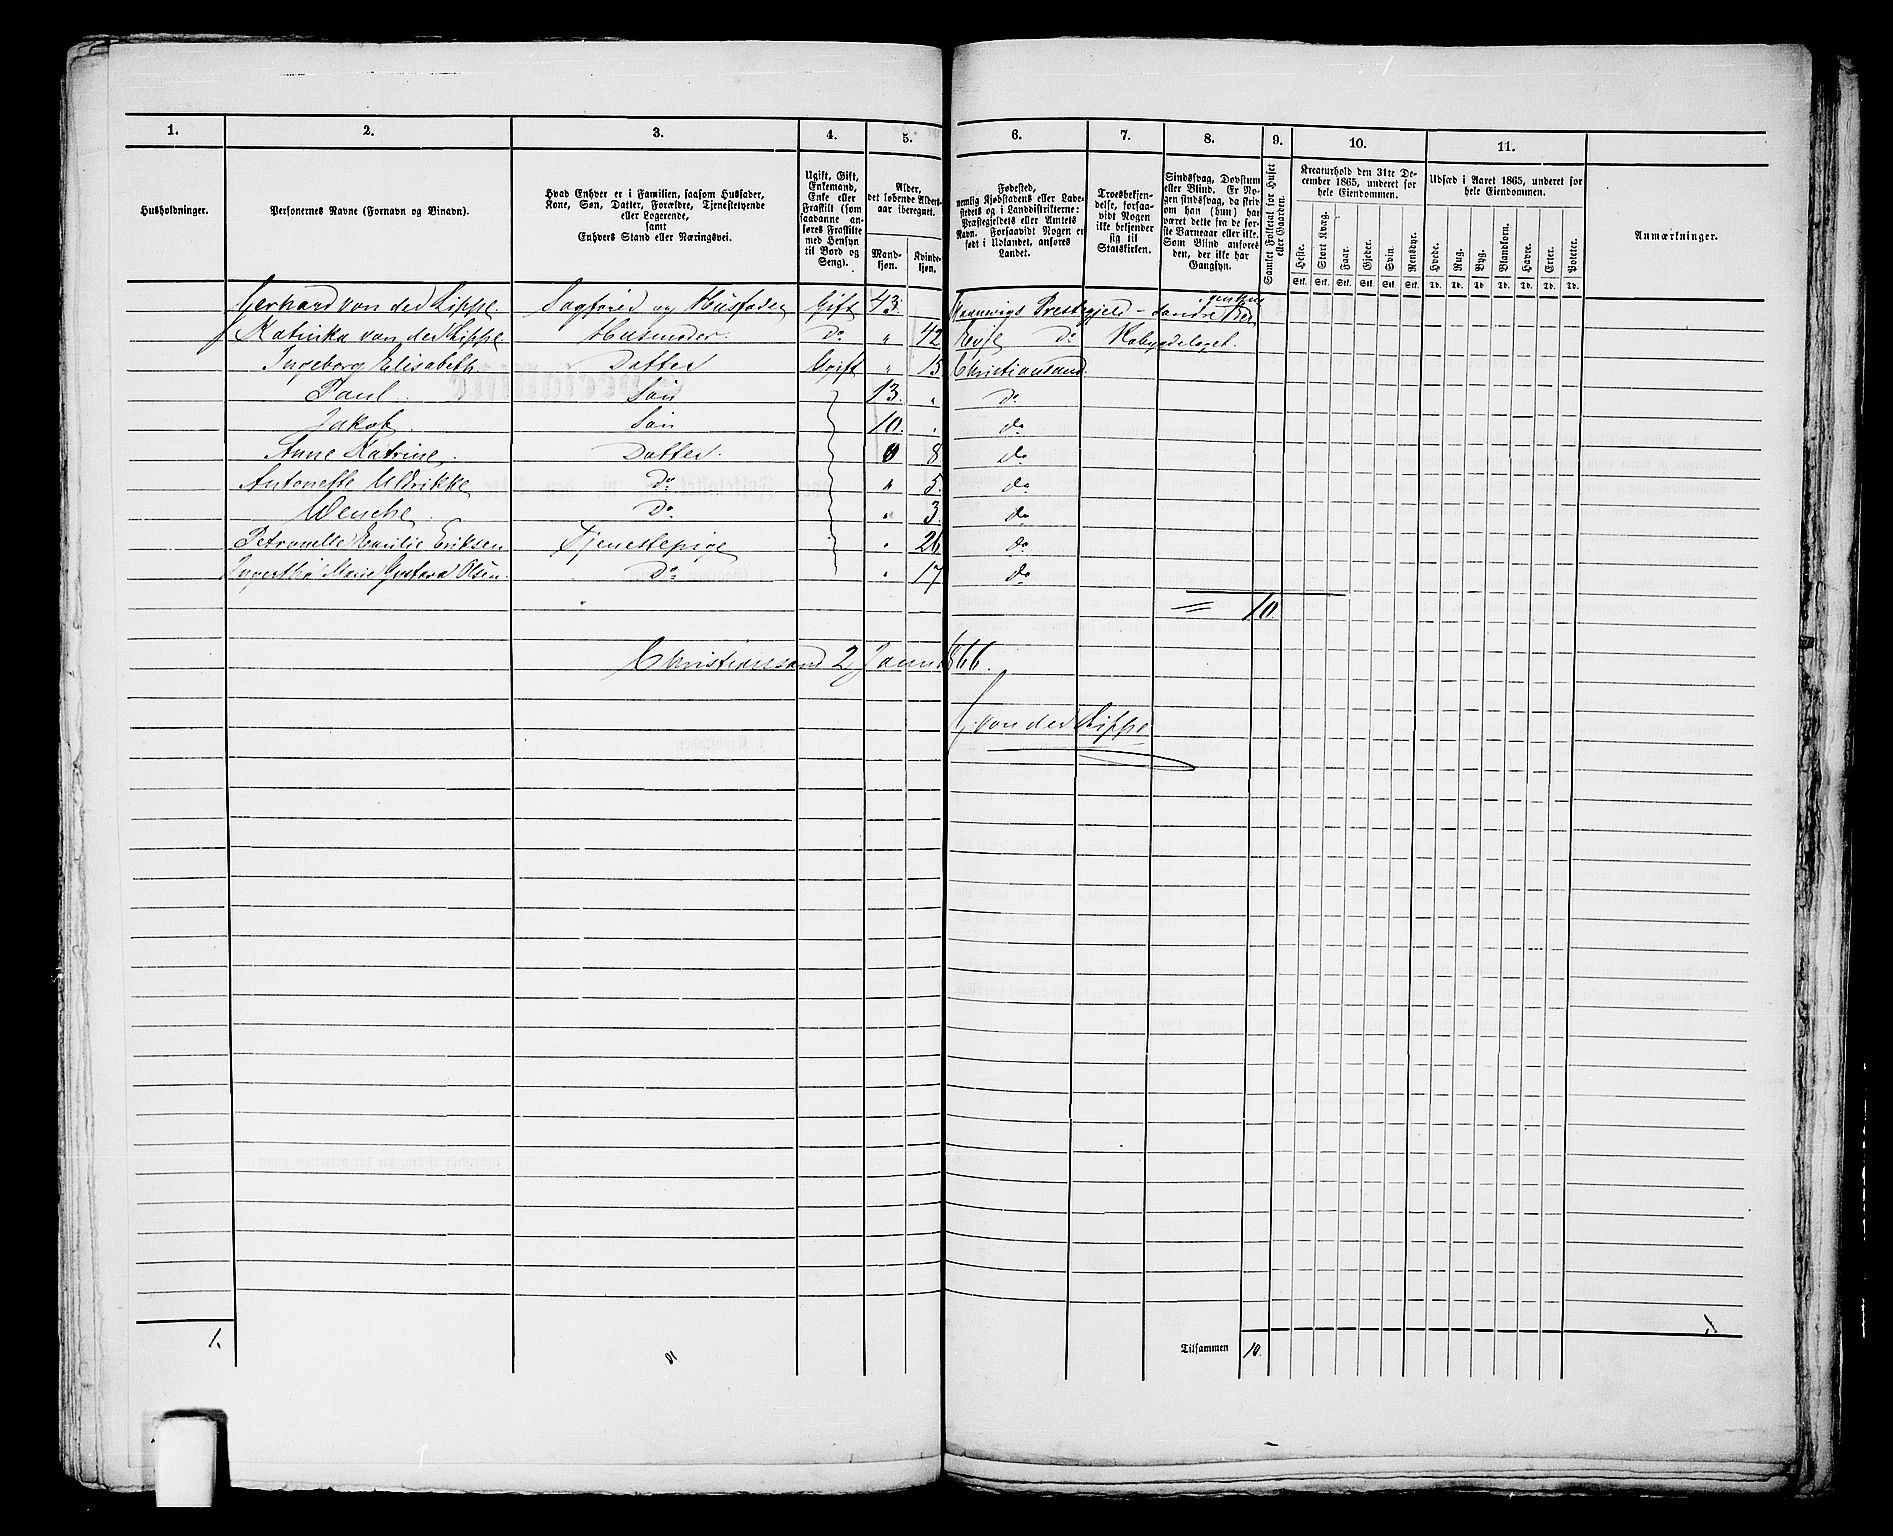 1. 2. 3. 4. 5. 6. 7. 8. 9. 10. 11.
Husholdninger.
Personernes Navne (Fornavn og Binavn).
Hvad Enhver er i Familien, saasom Husfader,
Kone, Søn, Datter, Forældre, Tjenestetyende
eller Logerende,
samt
Enhvers Stand eller Næringsvei.
Ugift, Gift,
Enkemand,
Enke eller
Fraskilt (som
saadanne an-
føres Fraskilte
med Hensyn
til Bord og
Seng).
Alder,
det løbende Alders-
aar iberegnet.
Mand-
kjøn.
Kvinde-
kjøn.
Fødested,
nemlig Kjøbstadens eller Lade-
stedets og i Landdistrikterne:
Præstegjeldets eller Amtets
Navn. Forsaavidt Nogen er
født i Udlandet, anføres
Landet.
Troesbekjen-
delse, forsaa-
vidt Nogen
ikke bekjender
sig til
Statskirken.
Sindssvag, Døvstum
eller Blind. Er No-
gen sindssvag, da skriv
om han (hun) har
været dette fra de før-
ste Barneaar eller ikke.
Som Blind anføres
den, der ikke har
Gangsyn.
Samlet Folketal for Huset
eller Gaarden.
Kreaturhold den 31te De-
cember 1865, underet for
hele Eiendommen.
Heste. Stort Kvæg. Faar. Gjeder. Svin. Rensdyr.
Stk. Stk. Stk. Stk. Stk. Stk.
Udsæd i Aaret 1865, underet for
hele Eiendommen.
Hvede. Rug. Byg. Blandkorn. Havre. Erter. Poteter.
Td. Td. Td. Td. Td. Td. Td.
Anmærkninger.
Gerhard von der Lippe. Sagfører og Husfader Gift 43. Præstegjeld - søndre
Katinka von der Lippe Husmoder. Do " 42 Evje Do Robygdelaget.
Ingeborg Elisabeth Datter Ugift " 15. Christiansand.
Paul. Søn 13. " Do
Jakob. Søn 10. " do
Anne Katrine. Datter. " 8 do
Antonette Ulrikke Do " 5. do
Wenche. Do " 3. do
Petronelle Emilie Eriksen Tjenestepige " 26 do
Marie Gustava Olsen. Do " 17 do
= 10.
Christianssand 2 Januar 1866.
G. von der Lippe
1. Tilsammen 10.